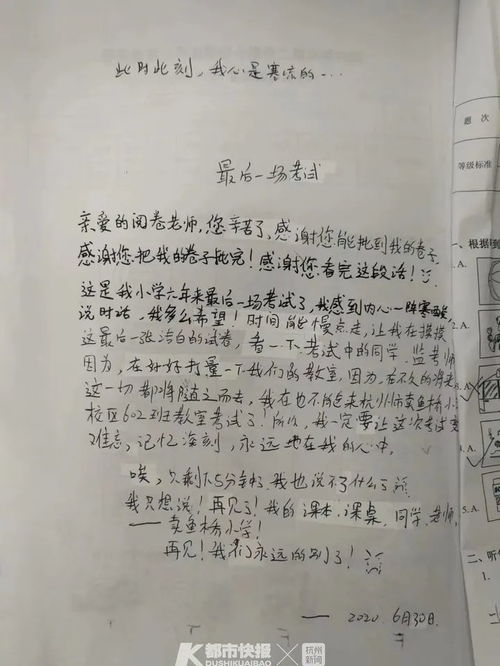 此时此刻，我心是寒凉的…
最后一场考试
亲爱的阅卷老师，您辛苦了，感谢您能批到我的卷子
感谢您把我的卷子批完！感谢您看完这段话！
这是我小学六年来最后一场考试了，我感到内心一阵寒
说时话，我多么希望！时间能慢点走，让我在摸摸
这最后一张洁白的试卷，看一下考试中的同学，监考师
因为，在好好打量一下我们的教室，因为，在不久的将来
这一切都随之而去，我在也不能来杭州师卖鱼桥小
校区602班教室考试了！所以，我一定要让这次考试变
难忘，记忆深刻，永远地在我的心中。
唉，只剩下5分钟了我也说不了什么了
我只想说！再见了！我的课本、课桌，同学，老师，
——卖鱼桥小学！
再见！我们永远的别了！
—— 2020 6月30日.
题 次
等级标准
一、根据
1. A.
2. A.
5. A.
二、听
都市快报
DUSHIKUAIBAO
杭州
新闻